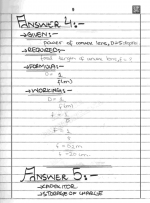 ANSWER 4:-
→GIVEN:-
power of convex lens, D=5 diopter
→REQUIRED:-
focal length of convex lens, f = ?
→FORMULA:-
D = 1
f(m)
→WORKING:-
D = 1
f(m)
f = 1
D
f = 1
5
f = 0.2 m
f = 20 cm
ANSWER 5:-
→CAPACITOR
→STORAGE OF CHARGE